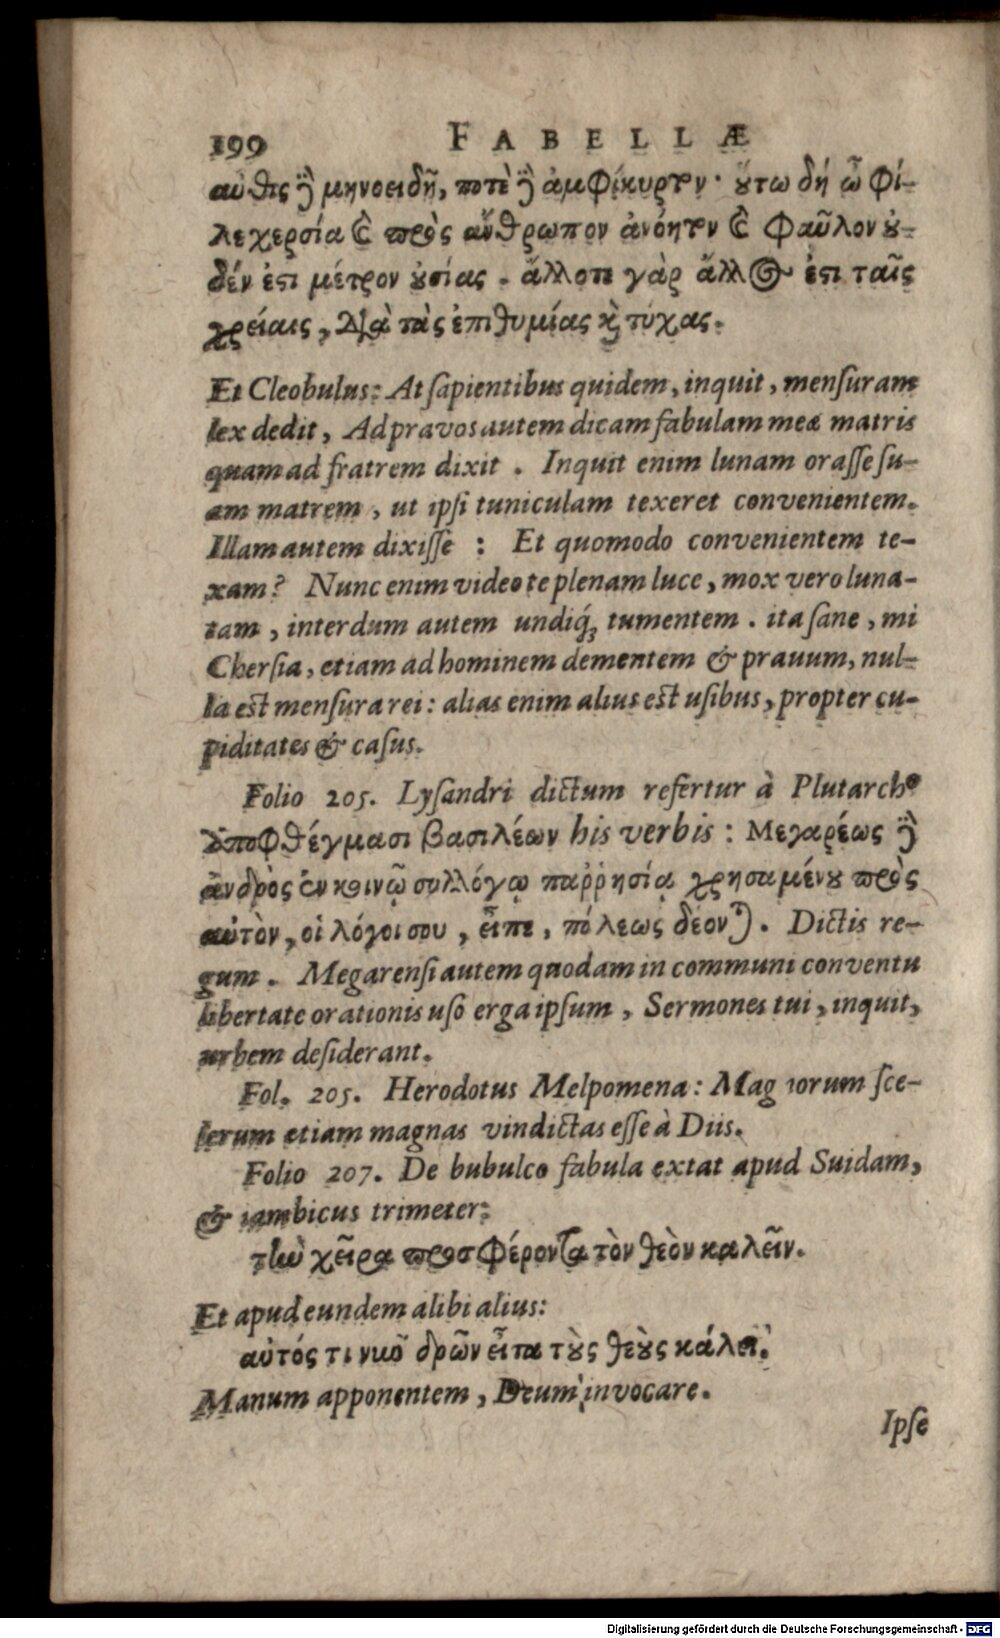 199 FABELLÆ
αὖθις ἢ μηνοειδῆ, ποτὲ ἢ ἀμφίκυρτον· ȣ̔τω δή ὦ φί-
λε χερσία ϗ πρὸς ἄνθρωπον ἀνόητον ϗ φαῦλον ȣ̓-
δέν ἐστι μέτρον ȣ̓σίας. ἄλλοτε γὰρ ἄλλος ἐστι ταῖς
χρείαις, διὰ τὰς ἐπιθυμίας ϗ τύχας.
Et Cleobulus: At sapientibus quidem, inquit, mensuram
lex dedit, Ad pravos autem dicam fabulam meæ matris
quam ad fratrem dixit. Inquit enim lunam orasse su-
am matrem, ut ipsi tuniculam texeret convenientem.
Illam autem dixisse: Et quomodo convenientem te-
xam? Nunc enim video te plenam luce, mox vero luna-
tam, interdum autem undiq́; tumentem. ita sane, mi
Chersia, etiam ad hominem dementem & prauum, nul-
la est mensura rei: alias enim alius est usibus, propter cu-
piditates & casus.
Folio 205. Lysandri dictum refertur à Plutarcho
Ἀποφθέγμασι βασιλέων his verbis: Μεγαρέως ἢ
ἀνδρὸς ἐν κοινῷ συλλόγῳ παῤῥησίᾳ χρησαμένȣ πρὸς
αὐτὸν, οἱ λόγοι σου, εἶπε, πόλεως δέονται. Dictis re-
gum. Megarensi autem quodam in communi conventu
libertate orationis uso erga ipsum, Sermones tui, inquit,
urbem desiderant.
Fol. 205. Herodotus Melpomena: Magiorum sce-
lerum etiam magnas vindictas esse à Diis.
Folio 207. De bubulco fabula extat apud Suidam,
& iambicus trimeter:
τὴν χεῖρα προσφέροντα τὸν θεὸν καλεῖν.
Et apud eundem alibi alius:
αὐτός τι νιῦ δρῶν εἶτα τȣ̀ς θεȣ̀ς κάλει.
Manum apponentem, Deum invocare.
Ipse
Digitalisierung gefördert durch die Deutsche Forschungsgemeinschaft - DFG